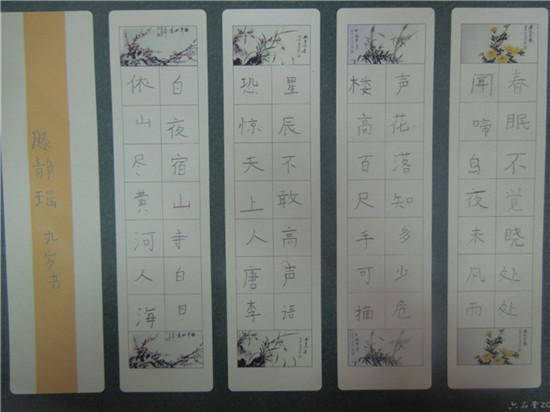 春眠不觉晓处处
闻啼鸟夜来风而
声花落知多少危
楼高百尺手可摘
星辰不敢高声语
恐惊天上人唐李
白夜宿山寺白日
依山尽黄河人海
滕静瑶 九岁书